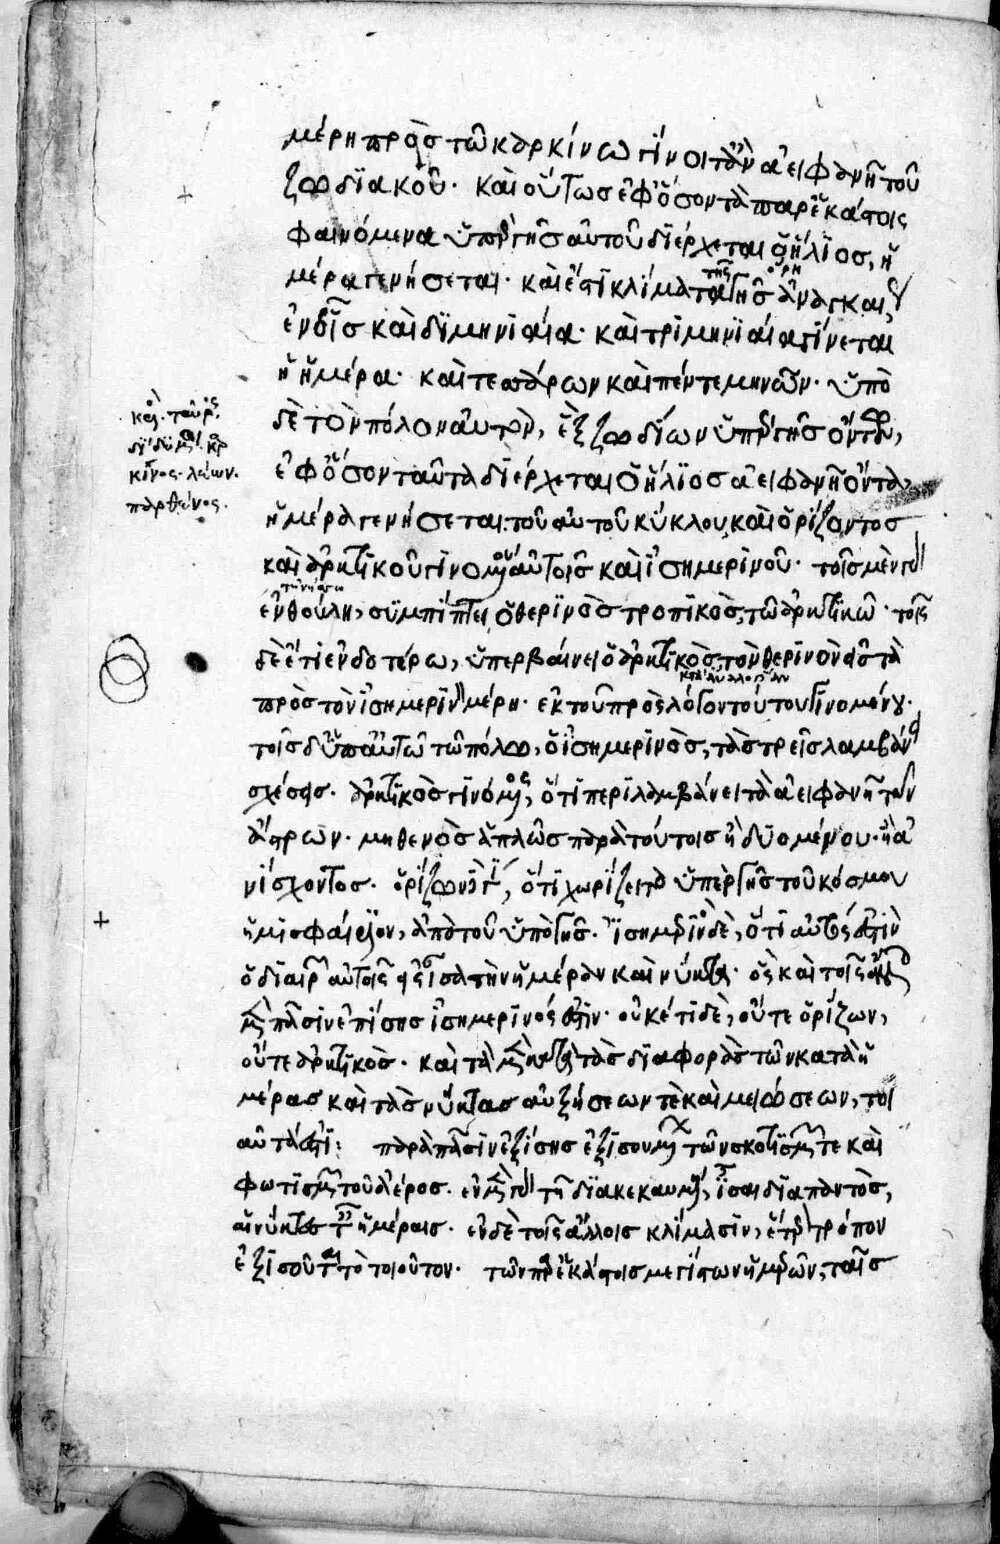 μέρη πρὸς τῶ καρκίνω γίνοιτ' ἂν ἀειφανῆ τοῦ
ζωδϊακοῦ· καὶ οὕτως ἐφ' ὅσον τὰ παρ' ἑκάστοις
φαινόμενα ὑπὲρ γῆς αὐτοῦ διέρχεται ὁ ἥλιος, ἡ
μέρα γενήσεται· καὶ ἔστι κλίματα τῆς γῆς
ἐν οἷς καὶ διμηνιαία· καὶ τριμηνιαία γίνεται
ἡ ἡμέρα· καὶ τεσσάρων καὶ πέντε μηνῶν· ὑπὸ
δὲ τὸν πόλον αὐτὸν, ἓξ ζωδίων ὑπὲρ γῆς ὄντων,
καρ. ταῦρος.
δίδυμοι. καρ
κῖνος. λέων.
παρθένος.
ἐφ' ὅσον ταῦτα διέρχεται ὁ ἥλιος ἀειφανῆ ὄντα,
ἡμέρα γενήσεται τοῦ αὐτοῦ κύκλου, καὶ ὁρίζοντος
καὶ ἀρκτικοῦ γινομένου αὐτοῖς καὶ ἰσημερινοῦ· τοῖς μὲν γὰρ
τῇ νήσῳ
ἐν θούλη, συμπίπτει ὁ θερινὸς τροπικὸς, τῶ ἀρκτικῶ· τοῖς
δὲ ἔτι ἐνδοτέρω, ὑπερβαίνει ὁ ἀρκτικὸς τὸν θερινὸν εἰς τὰ
πρὸς τὸν ἰσημερινὸν μέρη· ἐκ τοῦ πρὸς λόγον τούτου γινομένου·
τοῖς δ' ὑπ' αὐτῶ τῶ πόλω, ὁ ἰσημερινὸς, τὰς τρεῖς λαμβάνει
σχέσεις· ἀρκτικὸς γινόμενος, ὅτι περιλαμβάνει τὰ ἀειφανῆ τῶν
ἄστρων· μηθενὸς ἁπλῶς παρὰ τούτοις ἢ δυομένου· ἢ ἀ
νίσχοντος· ὁρίζων δὲ, ὅτι χωρίζει τὸ ὑπὲρ γῆς τοῦ κόσμου
ἡμισφαίριον, ἀπὸ τοῦ ὑπὸ γῆς· ἰσημερινὸς δὲ, ὅτι αὐτός ἐστιν
ὁ διαιρῶν αὐτοῖς εἰς ἴσα τὴν ἡμέραν καὶ νύκτα· ὃς καὶ τοῖς ἄλλοις
πᾶσιν ἐπίσης ἰσημερινός ἐστιν· οὐκέτι δὲ, οὔτε ὁρίζων,
οὔτε ἀρκτικός· καὶ τὰ μὲν κατὰ τὰς διαφορὰς τῶν κατὰ ἡ
μέρας καὶ τὰς νύκτας αὐξήσεων τὲ καὶ μειώσεων, τοι
αῦτα ἐστί: παρὰ πᾶσιν ἐξίσης ἐξισουμένων τῶν σκοτισμῶν τε καὶ
φωτισμῶν τοῦ ἀέρος· ἐν μὲν γὰρ τῆ διακεκαυμένη, ἴσαι διαπαντὸς,
αἱ νύκτες ταῖς ἡμέραις· ἐν δὲ τοῖς ἄλλοις κλίμασιν, ἕτερον τρόπον
ἐξισοῦται τὸ τοιοῦτον· τῶν παρ' ἑκάστοις μεγίστων ἡμερῶν, ταῖς